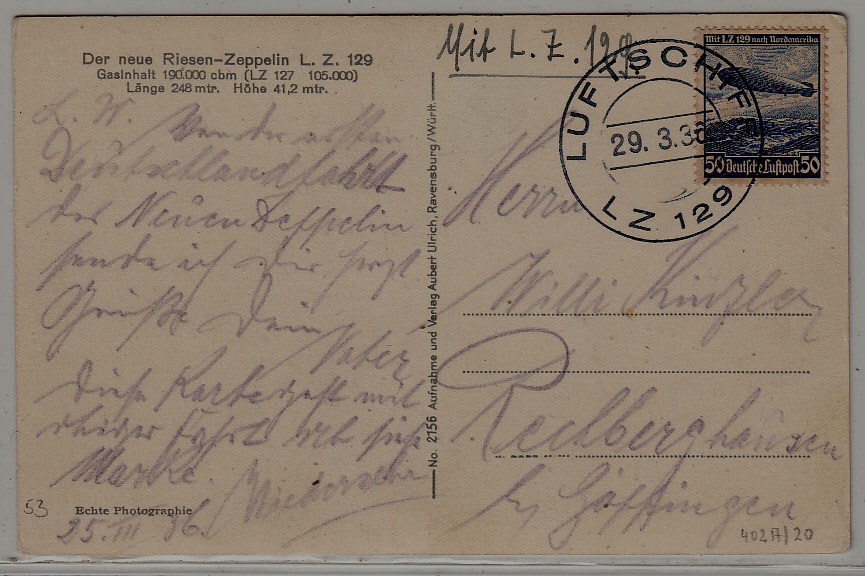 Der neue Riesen-Zeppelin L. Z. 129
Gasinhalt 190.000 cbm (LZ 127 105.000)
Länge 248 mtr. Höhe 41,2 mtr.
L. W. Von der ersten
Deutschlandfahrt
des Neuen Zeppelin
sende ich Dir herzl
Grüße Dein
Vater
Diese Karte geht mit
Fahrt
Marke. Wiedersehn
53
Echte Photographie
25. III 36.
No. 2156 Aufnahme und Verlag Aubert Ulrich, Ravensburg/Württ.
Mit L. Z. 129
Mit LZ 129 nach Nordamerika
50 Deutsche Luftpost 50
LUFTSCHIFF
29. 3.36
LZ 129
Herrn
Willi Kinzler
Rechberghausen
b/ Göppingen
402A/20